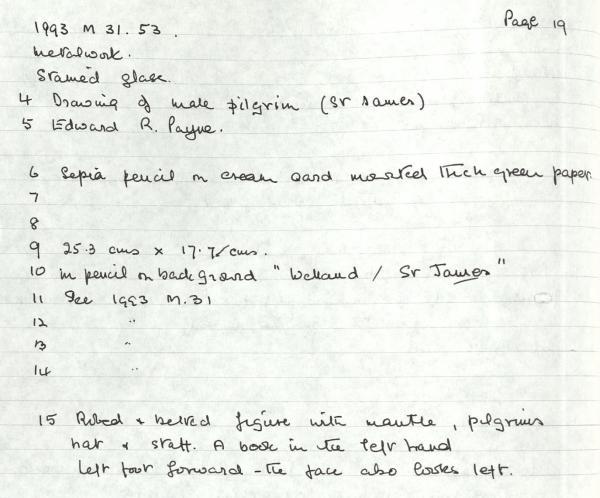 Page 19
1993 M 31. 53.
Metalwork.
Stained glass.
4 Drawing of male pilgrim (St James)
5 Edward R. Payne.
6 Sepia pencil on cream card mounted thick green paper.
7
8
9 25.3 cms x 17.7 cms.
10 in pencil on background " / St James"
11 See 1993 M.31
12 "
13 "
14 "
15 Robed & belted figure with mantle, pilgrims
hat & staff. A book in the left hand
left foot forward - the face also looks left.